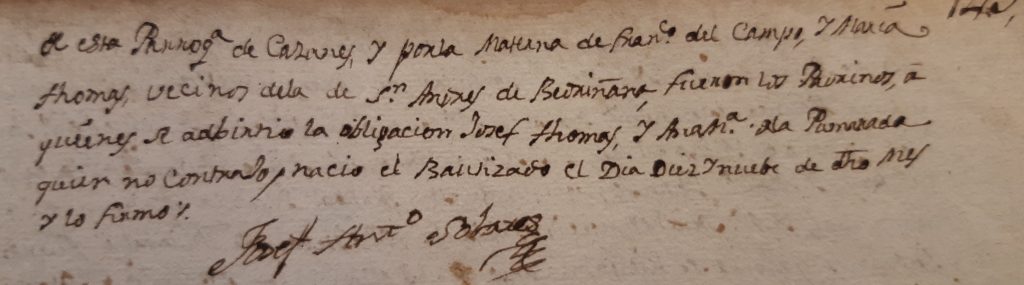 de esta Parroq.ª de Cazanes, y por la Materna de Fran.co del Campo, y Maria
thomas, vecinos dela de S.n Andres de Bedriñana, fueron los Padrinos, â
quienes se adbirtio la obligacion Josef thomas, y Ana M.ª dela Pumarada
quien no contrajo, nacio el Bautizado el Dia Diez y nuebe de dho Mes
y lo firmo.
Josef Ant.o Solares